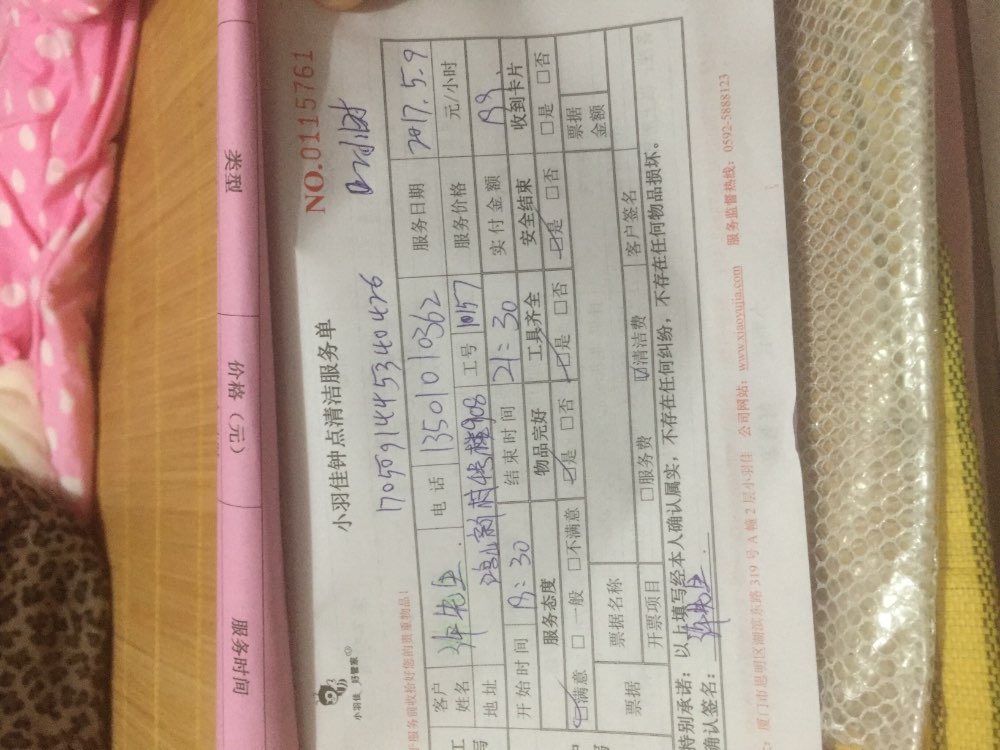 类型
价格（元）
服务时间
NO.01155761
小羽佳钟点清洁服务单
小羽佳 好管家
服务前收检好您的贵重物品！
客户姓名
电话 13501010362 服务日期 2017.5.9
地址
工号 10157 服务价格 元/小时
开始时间 结束时间 21:30 实付金额
服务态度 物品完好 工具齐全 安全结束 收到卡片
满意 □一般 □不满意 是 □否 是 □否 是 □否 □是 □否
票据 票据名称 票据金额
开票项目 □服务费 ☑清洁费 客户签名
特别承诺：以上填写经本人确认属实，不存在任何纠纷，不存在任何物品损坏。
确认签名：
厦门市思明区湖滨东路319号A幢2层小羽佳 公司网站：www.xiaoyujia.com 服务监督热线：0592-5888123